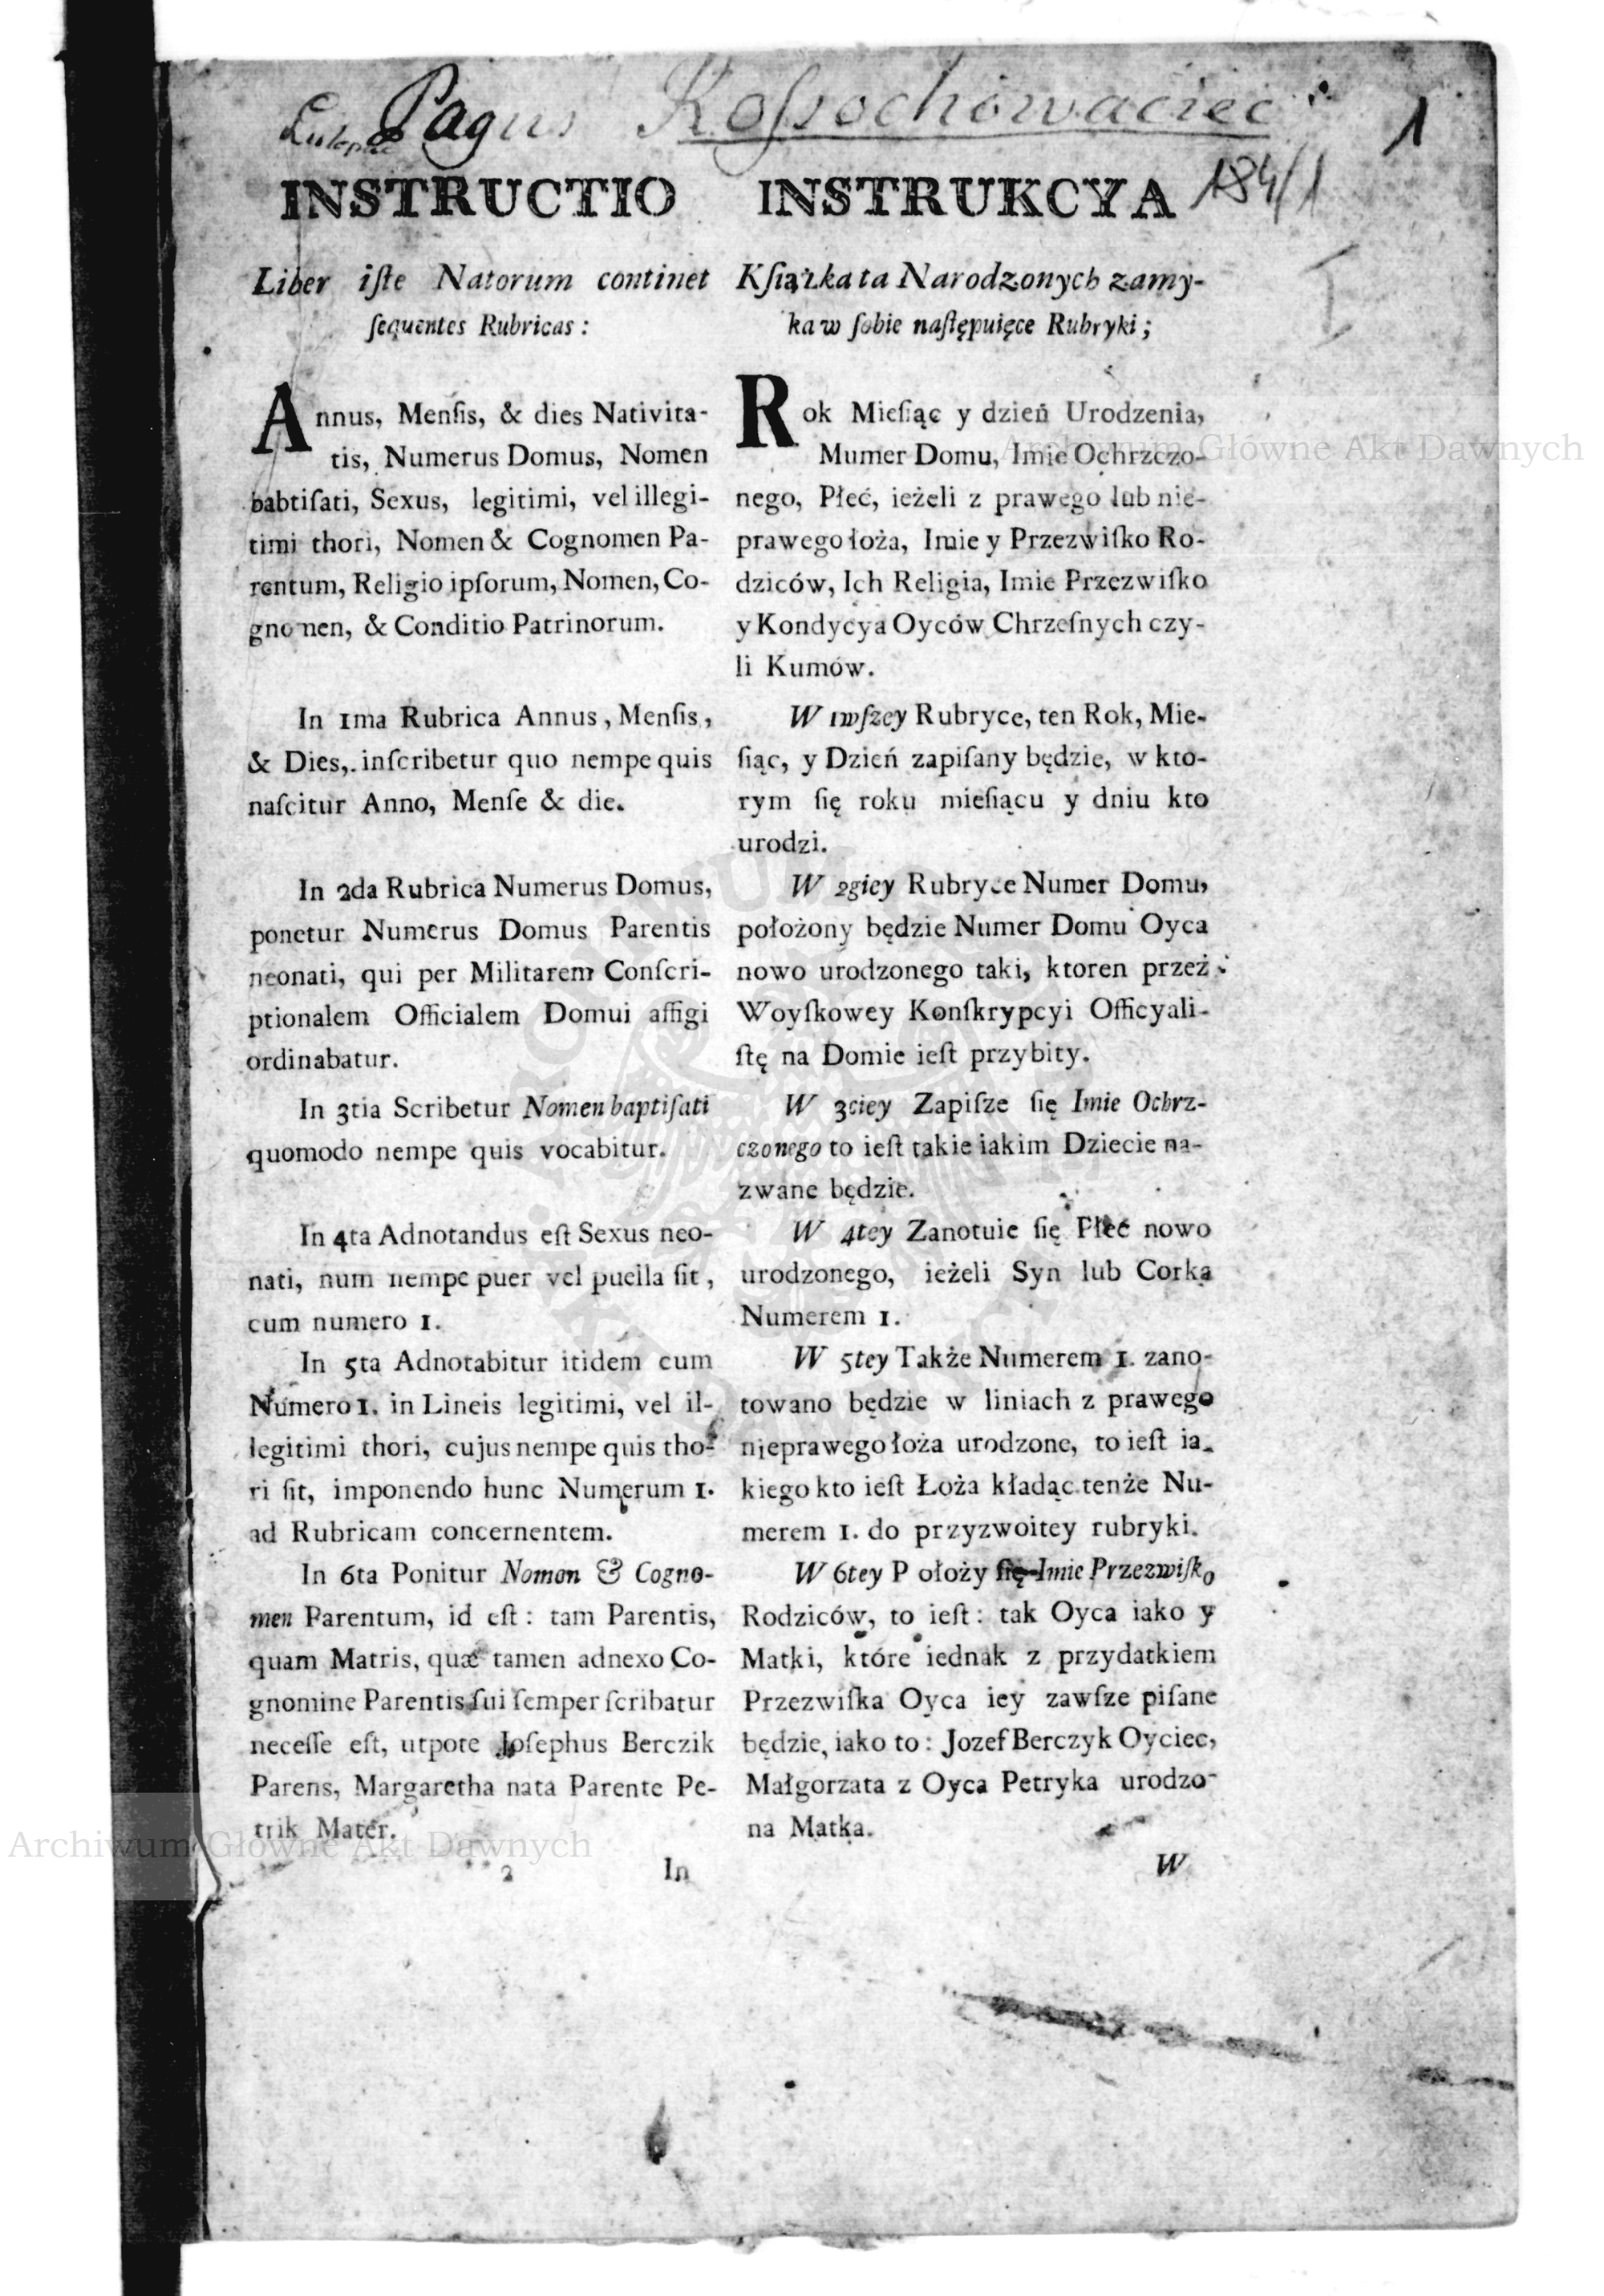 Pagus Kossochowaciec
1
184/1
I
INSTRUCTIO
Liber iſte Natorum continet
ſequentes Rubricas:
Annus, Menſis, & dies Nativita-
tis, Numerus Domus, Nomen
babtiſati, Sexus, legitimi, vel illegi-
timi thori, Nomen & Cognomen Pa-
rentum, Religio ipſorum, Nomen, Co-
gnomen, & Conditio Patrinorum.
In 1ma Rubrica Annus, Menſis,
& Dies, inſcribetur quo nempe quis
naſcitur Anno, Menſe & die.
In 2da Rubrica Numerus Domus,
ponetur Numerus Domus Parentis
neonati, qui per Militarem Conſcri-
ptionalem Officialem Domui affigi
ordinabatur.
In 3tia Scribetur Nomen baptiſati
quomodo nempe quis vocabitur.
In 4ta Adnotandus eſt Sexus neo-
nati, num nempe puer vel puella ſit,
cum numero 1.
In 5ta Adnotabitur itidem cum
Numero 1. in Lineis legitimi, vel il-
legitimi thori, cujus nempe quis tho-
ri ſit, imponendo hunc Numerum 1.
ad Rubricam concernentem.
In 6ta Ponitur Nomen & Cogno-
men Parentum, id eſt: tam Parentis,
quam Matris, quæ tamen adnexo Co-
gnomine Parentis ſui ſemper ſcribatur
neceſſe eſt, utpote Joſephus Berczik
Parens, Margaretha nata Parente Pe-
trik Mater.
2 In
INSTRUKCYA
Kſiążka ta Narodzonych zamy-
ka w ſobie naſtępuięce Rubryki;
Rok Mieſiąc y dzień Urodzenia,
Mumer Domu, Imie Ochrzczo-
nego, Płeć, ieżeli z prawego lub nie-
prawego łoża, Imie y Przezwiſko Ro-
dziców, Ich Religia, Imie Przezwiſko
y Kondycya Oyców Chrzeſnych czy-
li Kumów.
W 1wſzey Rubryce, ten Rok, Mie-
ſiąc, y Dzień zapiſany będzie, w kto-
rym ſię roku mieſiącu y dniu kto
urodzi.
W 2giey Rubryce Numer Domu,
położony będzie Numer Domu Oyca
nowo urodzonego taki, ktoren przeż
Woyſkowey Konſkrypcyi Officyali-
ſtę na Domie ieſt przybity.
W 3ciey Zapiſze ſię Imie Ochrz-
czonego to ieſt takie iakim Dziecie na-
zwane będzie.
W 4tey Zanotuie ſię Płeć nowo
urodzonego, ieżeli Syn lub Corką
Numerem 1.
W 5tey Także Numerem 1. zano-
towano będzie w liniach z prawego
nieprawego łoża urodzone, to ieſt ia-
kiego kto ieſt Łoża kładąc tenże Nu-
merem 1. do przyzwoitey rubryki.
W 6tey P ołoży ſię Imie Przezwiſko
Rodziców, to ieſt: tak Oyca iako y
Matki, które iednak z przydatkiem
Przezwiſka Oyca iey zawſze piſane
będzie, iako to: Jozef Berczyk Oyciec,
Małgorzata z Oyca Petryka urodzo-
na Matka.
W
Archiwum Główne Akt Dawnych
Archiwum Główne Akt Dawnych